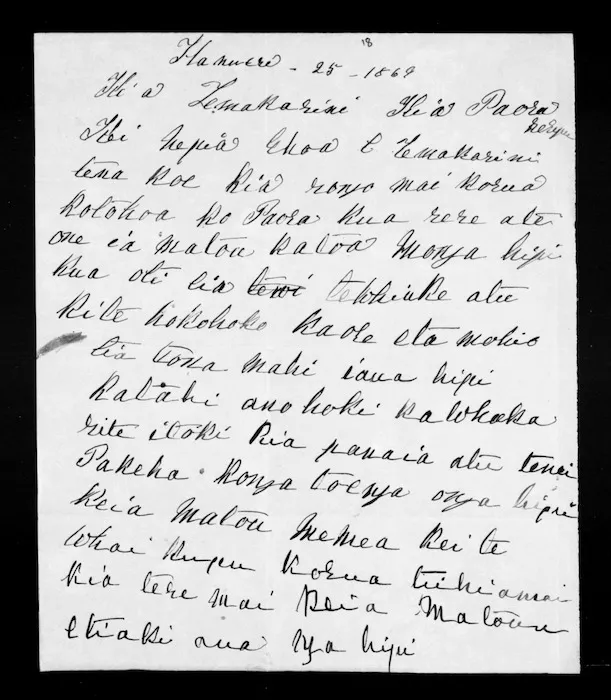 18
Hanuere - 25 - 1869
Ki a Temakarini Kia Paora
Kei nepia Ehoa E Temakarini
tena koe kia rongo mai korua
kotohoa ko Paora kua rere atu
one ia matou katoa Monga hipi
kua oti iia tewi tekhiuke atu
kite hokohoko kaore eta mohio
iia tona mahi iana hipi
Katahi ano hoki ka whaka
rite itoki kia panaia atu tenei
Pakeha konga toenga onga hipi
keia Matou Memea kei te
whai kupu korua tuhiamai
kia tere mai Keia Matou
etiaki ana nga hipi